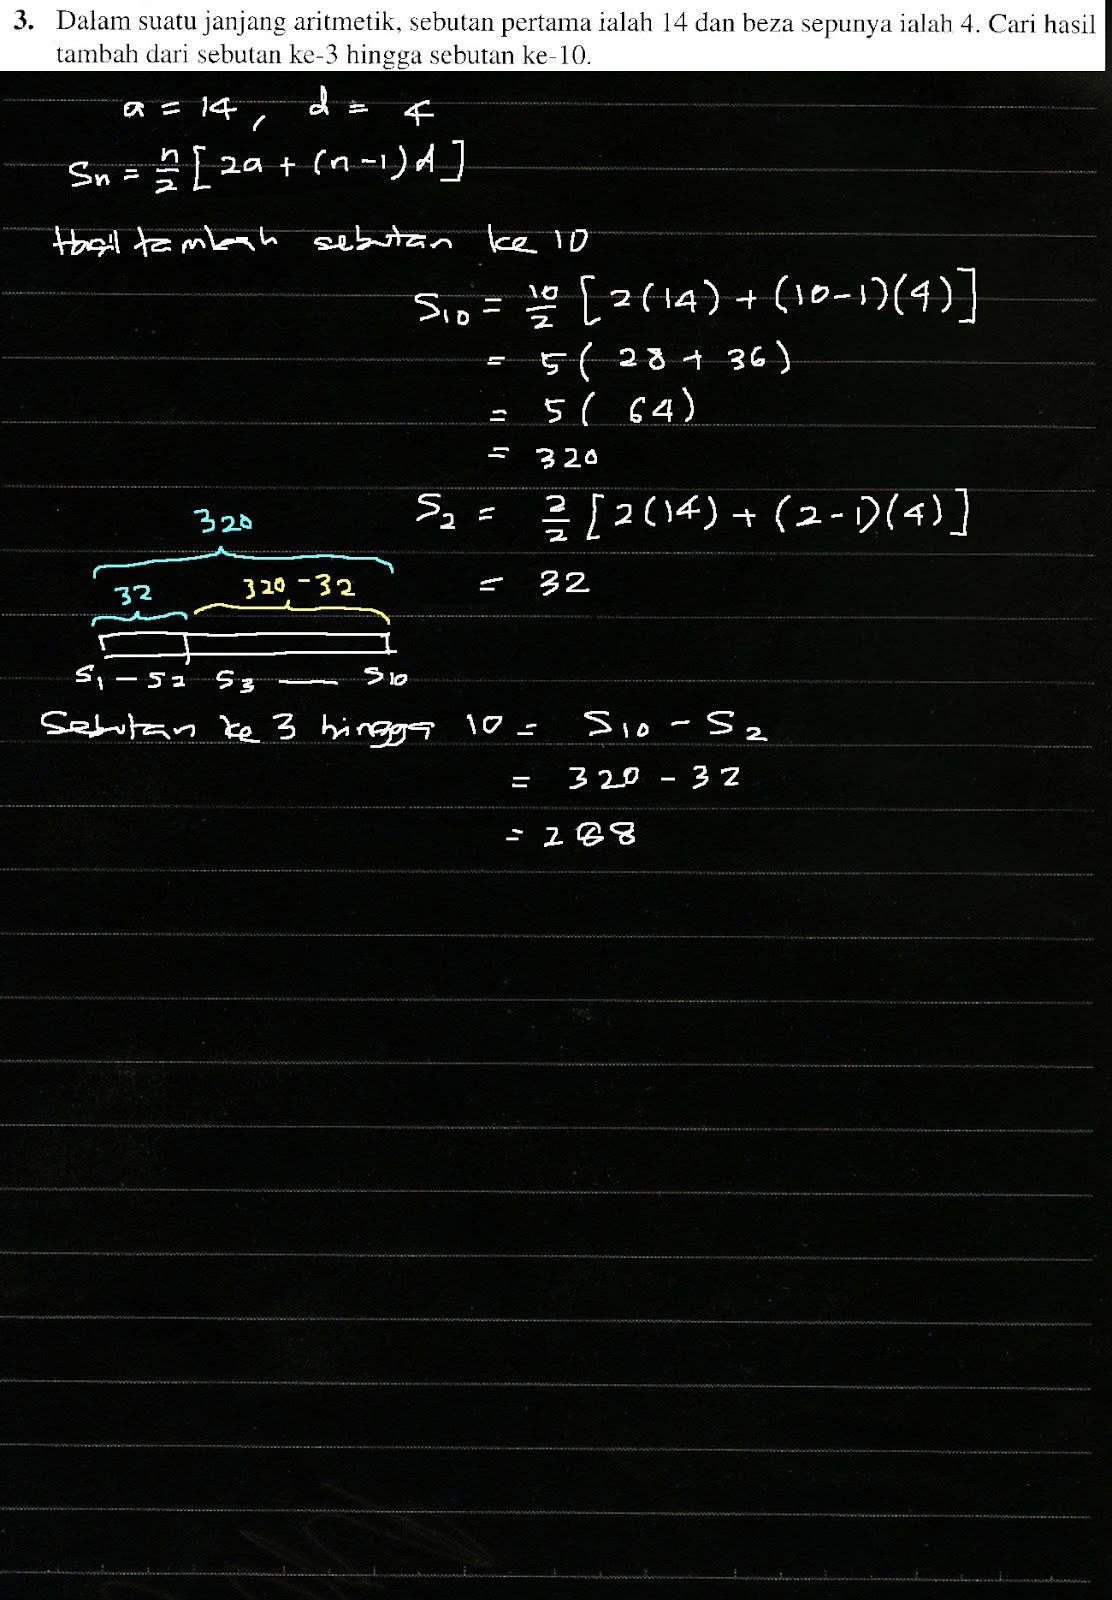 3. Dalam suatu janjang aritmetik, sebutan pertama ialah 14 dan beza sepunya ialah 4. Cari hasil
tambah dari sebutan ke-3 hingga sebutan ke-10.
a = 14, d = 4
Sn = n/2 [2a + (n-1)d]
Hasil tambah sebutan ke 10
S10 = 10/2 [2(14) + (10-1)(4)]
= 5(28 + 36)
= 5(64)
= 320
S2 = 2/2 [2(14) + (2-1)(4)]
= 32
320
32 320-32
S1 - S2 S3 — S10
Sebutan ke 3 hingga 10 = S10 - S2
= 320 - 32
= 288